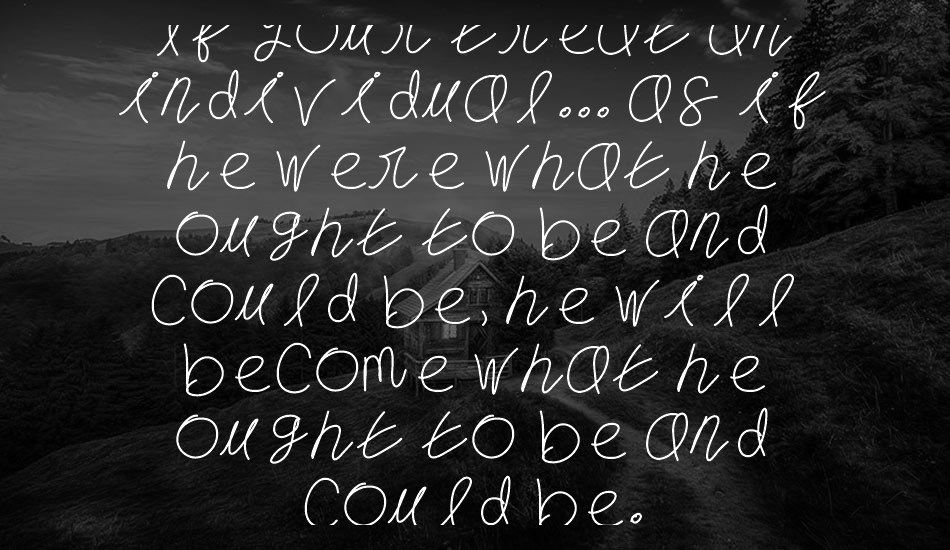 if your treat an
individual... as if
he were what he
ought to be and
could be, he will
become what he
ought to be and
could be.